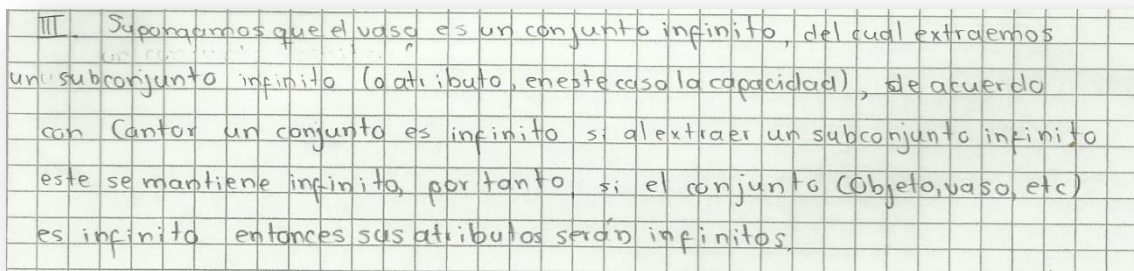 III. Supongamos que el vaso es un conjunto infinito, del cual extraemos
un subconjunto infinito (o atributo, en este caso la capacidad), de acuerdo
con Cantor un conjunto es infinito si al extraer un subconjunto infinito
este se mantiene infinito, por tanto si el conjunto (objeto, vaso, etc)
es infinito entonces sus atributos serán infinitos.